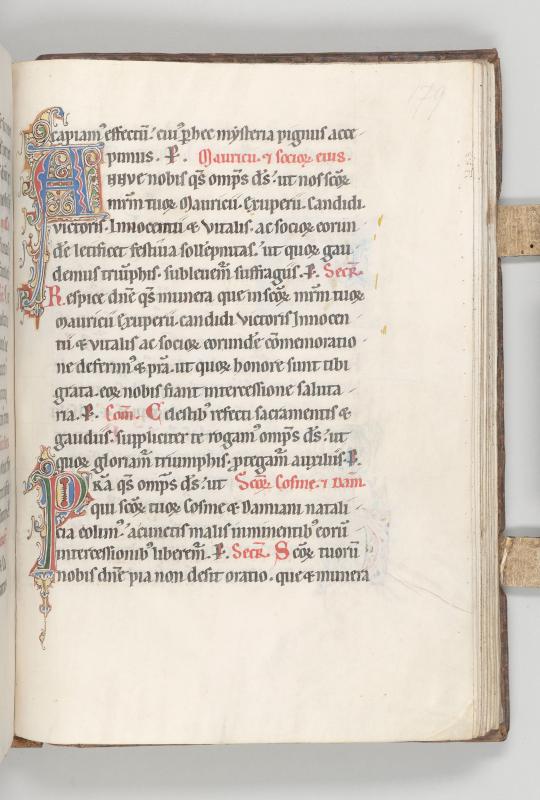 179
capiamꝰ effectū. cuiꝰ p̱ hec mysteria pignus acce
pimus. P̱. Mauricii ⁊ socioꝝ eius.
Annue nobis q̄s omp̄s d̄s. ut nos sc̄oꝝ
mr̄m tuoꝝ Mauricii. Exuperii. Candidi.
victoris. Innocentii & vitalis. ac socioꝝ eorun
dē letificet festiua sollempnitas. ut quoꝝ gau
demus triūphis. subleuem̄ suffragiis. P̱. Secr̄.
Respice dn̄e q̄s munera que in sc̄oꝝ mr̄m tuoꝝ
mauricii Exuperii. candidi victoris Innocen
tii & vitalis ac socioꝝ eorundē cōmemoratio
ne deferimꝰ & p̄ra. ut quoꝝ honore sunt tibi
grata. eoꝝ nobis fiant intercessione saluta
ria. P̱. Com̄. Celestibꝰ refecti sacramentis &
gaudiis. suppliciter te rogamꝰ omp̄s d̄s. ut
quoꝝ gloriam̄ triumphis. p̱tegam̄ auxiliis. P̱.
Pr̄a q̄s omp̄s d̄s. ut Sc̄oꝝ Cosme. ⁊ Dam̄.
qui sc̄oꝝ tuoꝝ Cosme & Damiani natali
cia colimꝰ. a cunctis malis imminentibꝰ eorū
intercessionibꝰ liberem̄. P̱. Secr̄. Sc̄oꝝ tuorū
nobis dn̄e pia non desit oratio. que & munera